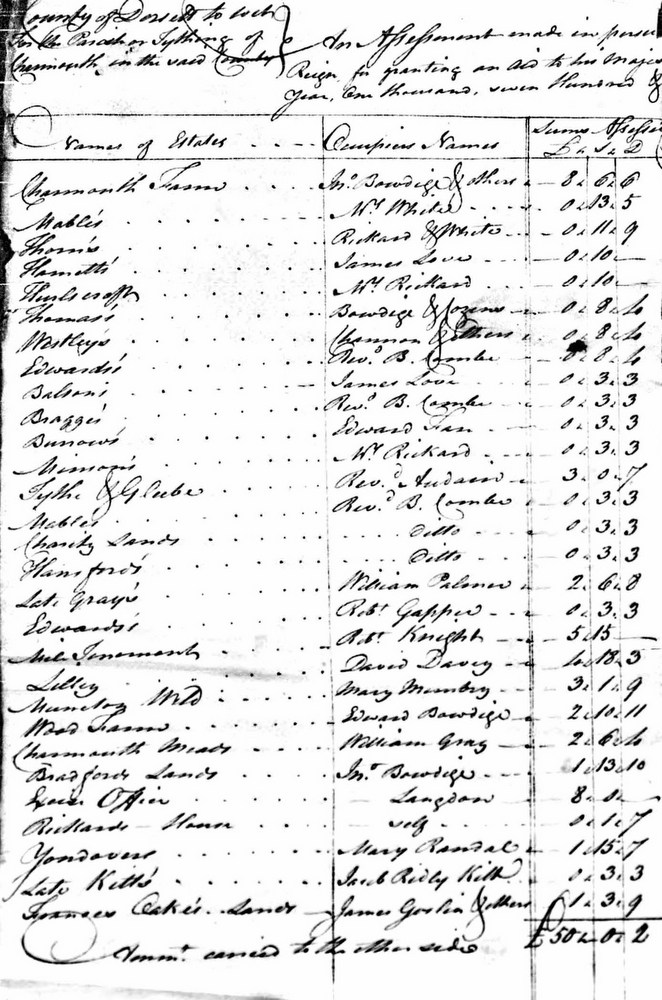 County of Dorsett to wit
For the Parish or Tything of
Charmouth in the said County
An Assessement made in persu
Reign for granting an aid to his Majes
Year, One thousand, seven Hundred &
Names of Estates Occupiers Names Sums Assesse
£ S D
Charmouth Farm Jno. Bowdige & others 8 6 6
Mables Mr. White 0 13 5
Thorn's Rickard & White 0 11 9
Hamett's James Love 0 10 —
Thulscroft Mr. Rickard 0 10 —
Thomas's Bowdige & Cozens 0 8 4
Westley's Channon & others 0 8 4
Edwards's Revd. B. Combe 0 8 4
Balson's James Love 0 3 3
Bragge's Revd. B. Combe 0 3 3
Burrow's Edward 0 3 3
Mimson's Mr. Rickard 0 3 3
Tythe & Glebe Revd. Audain 3 0 7
Mables Revd. B. Combe 0 3 3
Charity Lands ditto 0 3 3
Hansford's Ditto 0 3 3
Late Gray's William Palmer 2 6 8
Edwards's Robt. Gapper 0 3 3
Mill Tenement Robt. Knight 5 15 —
Lilley David Davey 4 18 3
Wild Mary Mumbry 3 1 9
Wood Farm Edward Bowdige 2 10 11
Charmouth Meads William Gray 2 6 4
Bradford Lands Jno. Bowdige 1 13 10
Excise Office — Langdon 8 0 —
Rickards House — self 0 1 7
Yondovers Mary Randal 1 15 7
Late Kitt's Jacob Ridly Kitt 0 3 3
Frances Oake's Lands James Goslin & others 1 3 9
Amount carried to the other side £ 50 0 2